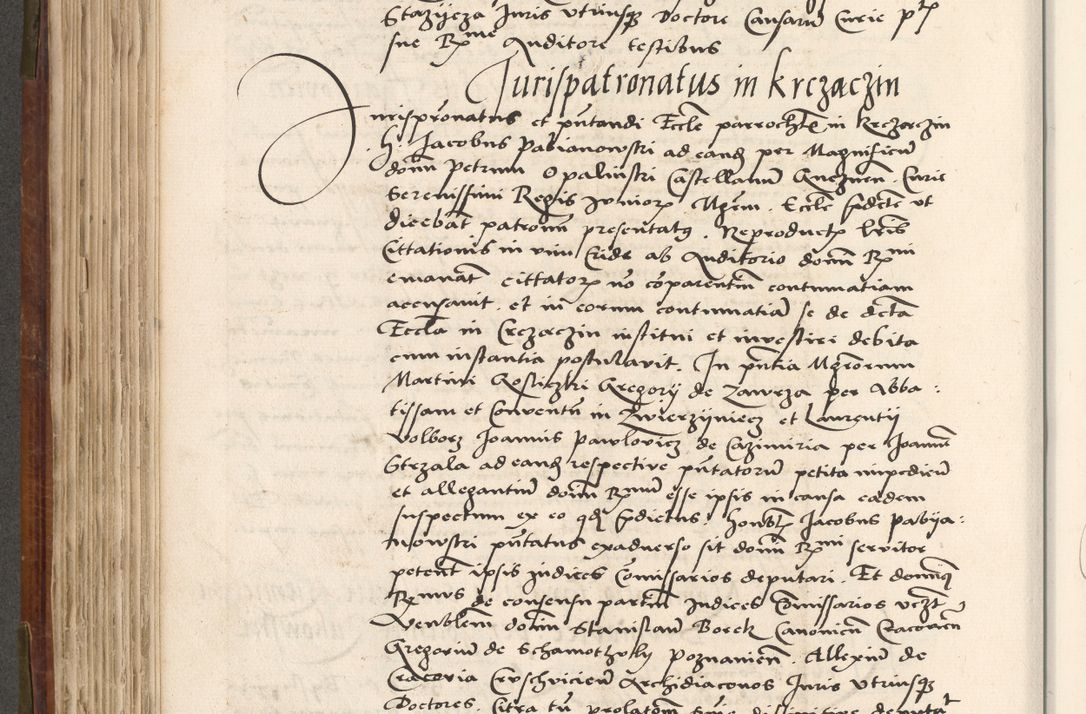 Stazijcza Juris Vtriusq Doctore Causarū Curie p
sue Rme Auditore testibus
Jurispatronatus in Krczaczin
Jurispronatus et pntandi Eccle parrochle in Krczaczin
h. Jacobus Pabianowski ad eand per Magnificū
donn Petrum Opalinski Castellanū Gneznen. Curie
Serenissimi Regis Junior Mgrm. Eccle ſdicte ut
dicebat patronum presentatg. Reproductz lris
Cittationis in vim Cride ab Auditorio domi Rmi
emanat cittator no coparentm contumatiam
accusavit. et in eorum contumatia se de dcta
Eccla in Crczaczin institui et investire debita
cum instantia postulavit. In pntia Mgrorum
Martini Gosliczki Gregorij de Zawrza per Abba:
tissam et Conventu in Zwierzijniecz et Laurentij
Wolborz Joannis Pawlovicz de Cazimiria per Joannē
Strzala ad eand respective pntatorū petita impediū
et allegantiū donn Rmū esse ipsis in causa eadem
suspectum ex eo qd ſdictus. honbl Jacobus Pabija:
nowski pntatus exadverso sit domi Rmi servitor
petent ipsis judices Comissarios deputari. Et domiq
Rmus de consensu partiū Judices Comissarios vczt
Venblem donn Stanislaū Borek Canonicū Cracovien
Gregoriū de Schamothuly Poznanien. Allexiū de
Cracovia Cruschvicien Archidiaconos Juris Vtriusq
Doctores. Citra tn prolatom snie diffinitive deputat